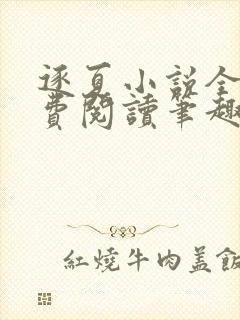 逐夏小説全
費閱讀筆趣
紅燒牛肉盖飯